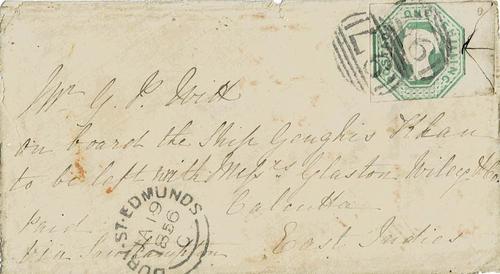 ONE SHILLING
Mr G. P. Witt
on board the Ship Genghis Khan
to be left with Messrs Glaston Wiley & Co
Calcutta
East Indies
paid
via Southampton
BURY-ST-EDMUNDS
JA 19
1856
C